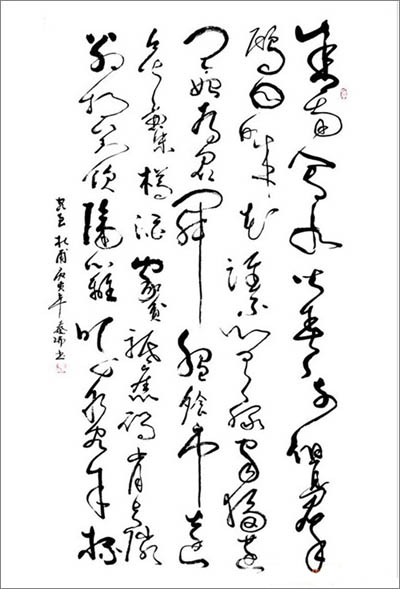 舍南舍北皆春水但見群
鷗日日來花徑不曾緣客掃蓬
門今始為君開盤飧市遠
無兼味樽酒家貧祗舊醅肯與鄰
翁相對飲隔籬呼取盡餘杯
客至 杜甫 丙寅年 書